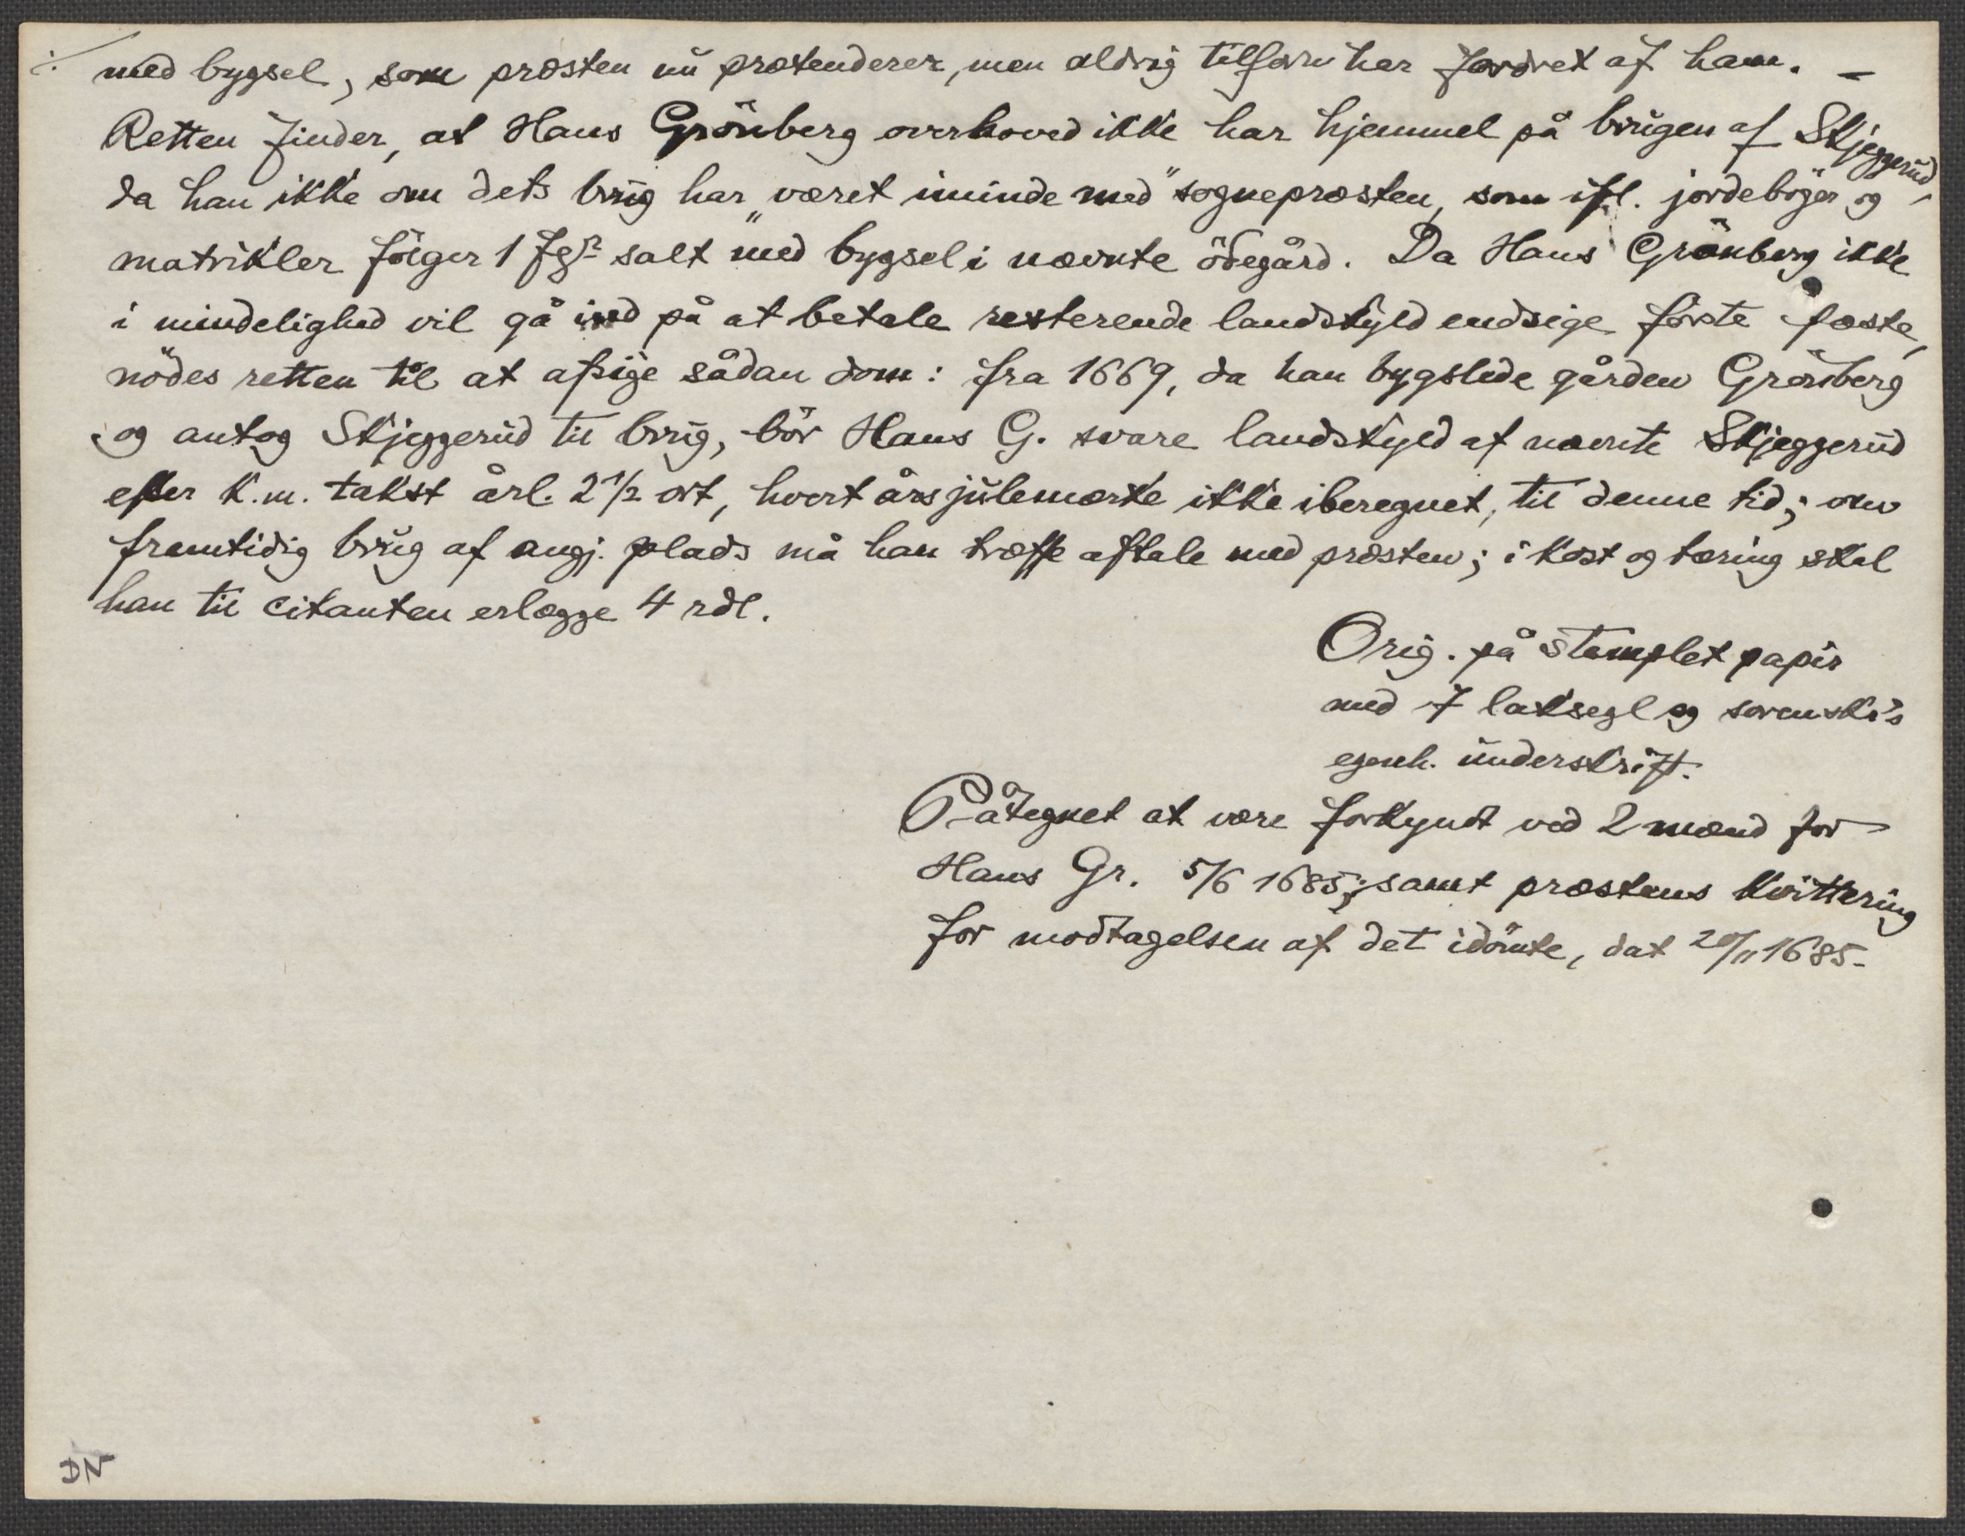 med bygsel, som præsten nu prætenderer, men aldrig tilforn har fordret af ham. –
Retten finder, at Hans Grönberg overhoved ikke har hjemmel på brugen af Skjeggerud,
da han ikke om dets brug har "været iminde med" sognepræsten, som ifl. jordebøger og
matrikler følger 1 fgr salt med bygsel i nævnte ödegård. Da Hans Grönberg ikke
i mindelighed vil gå ind på at betale resterende landskyld endsige förste fæste,
nödes retten til at afsige sådan dom: fra 1669, da han bygslede gården Grönberg
og antog Skjeggerud til brug, bör Hans G. svare landskyld af nævnte Skjeggerud
efter k.m. takst årl. 2 1/2 ort, hvert års julemærke ikke iberegnet, til denne tid; om
fremtidig brug af angj. plads må han træffe aftale med præsten; i kost og tæring skal
han til citanten erlægge 4 rdl.
Orig. på stemplet papir
med 7 laksegl og sorenskr's
egenh. underskrift.
Påtegnet at være forkyndt ved 2 mænd for
Hans Gr. 5/6 1685; samt præstens kvittering
for modtagelsen af det idömte, dat 20/11 1685.
DN